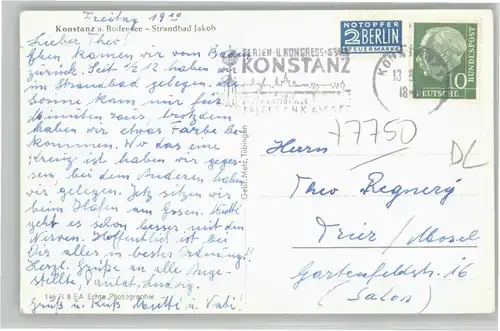 Freitag 19¹⁰
Konstanz a. Bodensee - Strandbad Jakob
Lieber Theo!
Eben kamen wir vom Baden
zurück. Seit ½12 haben wir
im Strandbad gelegen. Die
Sonne kam nur für
Minuten raus, trotzdem
haben wir etwas Farbe be-
kommen. Wo das eine
Kreuz ist haben wir geges-
sen, bei dem Anderen haben
wir gelegen. Jetz sitzen wir
beim Hafen am
geht es schon besser mit den
Nerven. Hoffentlich ist bei
Dir alles in bester Ordnung!!
Herzl. Grüße an alle Ange-
stellte,
Gruß u. Kuß Mutti u. Vati!
146 B 8 EA Echte Photographie
Gebr. Metz, Tübingen
FERIEN- U. KONGRESS-STADT
KONSTANZ
NOTOPFER
2 BERLIN
STEUERMARKE
KONSTANZ
13
18
10
DEUTSCHE
BUNDESPOST
77750
DL
Herrn
Theo Regnery
Trier/Mosel
Gartenfeldstr. 16
(Salon)